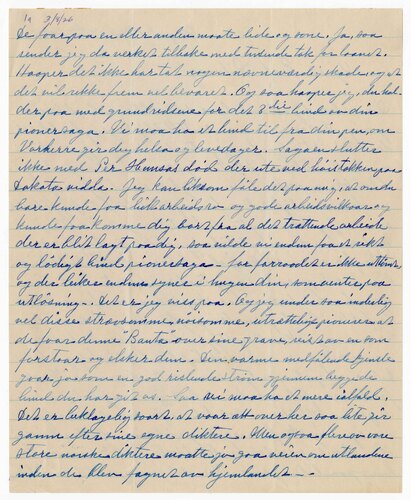 1a 3/9/26
De foar paa en eller anden maate lide og sone. Ja, saa
sender jeg da verket tilbake med tusende tak for laanet.
Haaper det ikke har tat nogen nævneværdig skade, og at
det vil rekke frem vel bevaret. Og saa haaper jeg, du hol-
der paa med grundridsene for det 3die bind av din
pionersaga. Vi maa ha et bind til fra din pen, om
Vorherre gir dig helse og levedager. Sagaen slutter
ikke med Per Hansas død der ute ved höistakken paa
Dakota vidda. Jeg kan liksom föle det paa mig, at om du
bare kunde faa litt arbeidsro og gode arbeidsvilkaar og
kunde faa komme dig bort fra al det trættende arbeide
der er blit lagt paa dig, saa vilde vi enden faa et vekt
og lödigt bind pionersaga - for farraadet er ikke uttömt,
og des likes enden synes i hugen din, som venter paa
utlösning. - Det er jeg viss paa. Og jeg under saa inderlig
vel disse strævsomme, nöisomme, utrættelige pionerer at
de faar denne "Bauta" over sine grave, reist av en som
forstaar og elsker dem. Den varme medfölende hjerte
gaar jo som en god rislende ström gjennem begge de
bind du har git os. Saa vi maa ha et mere ialfald.
Det er beklagelig svart, at vaar ætt over her saa lite gir
gamn efter sine egne diktere. Men ogsaa flere av vore
store norske diktere maatte jo gaa veien om utlandene
inden de blev fagnet av hjemlandet - -